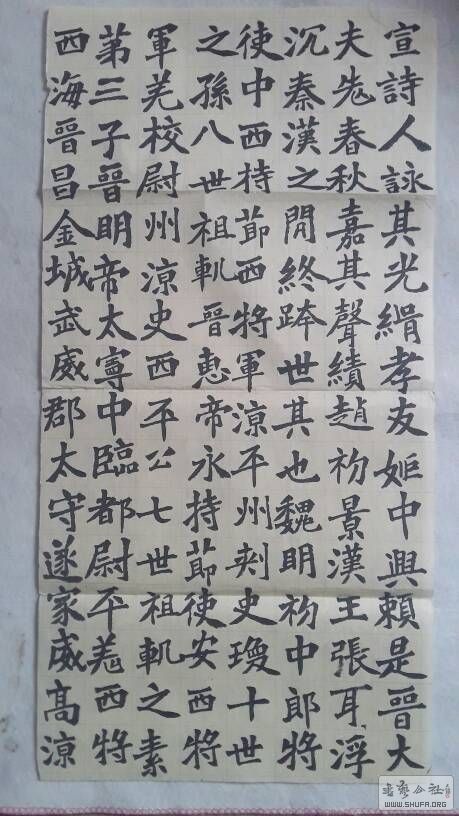 宣詩人詠其光緝孝友姬中興賴是晉大
夫老春秋嘉其聲績趙初景漢王張耳浮
沉秦漢之間終跨世其也魏明初中郎將
使中西持節西將軍涼平州刾史瓊十世
之孫八世祖軌晉惠帝永持節使安西將
軍羌校尉州涼史西平公七世祖軌之素
第三子晉明帝太寧中臨都尉平羌西將
西海晉昌金城武威郡太守遂家威高涼
書藝公社
WWW.SHUFA.ORG